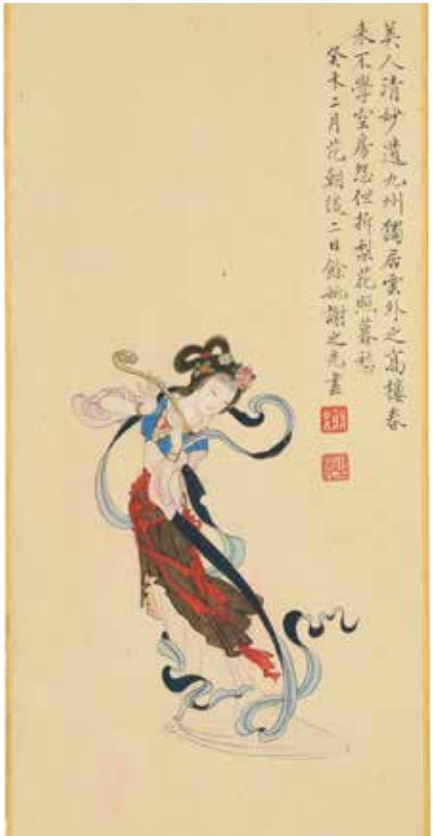 美人清妙遺九州獨居雲外之高樓春
來不學空房怨但折梨花照暮愁
癸未二月花朝後二日餘姚謝之光畫